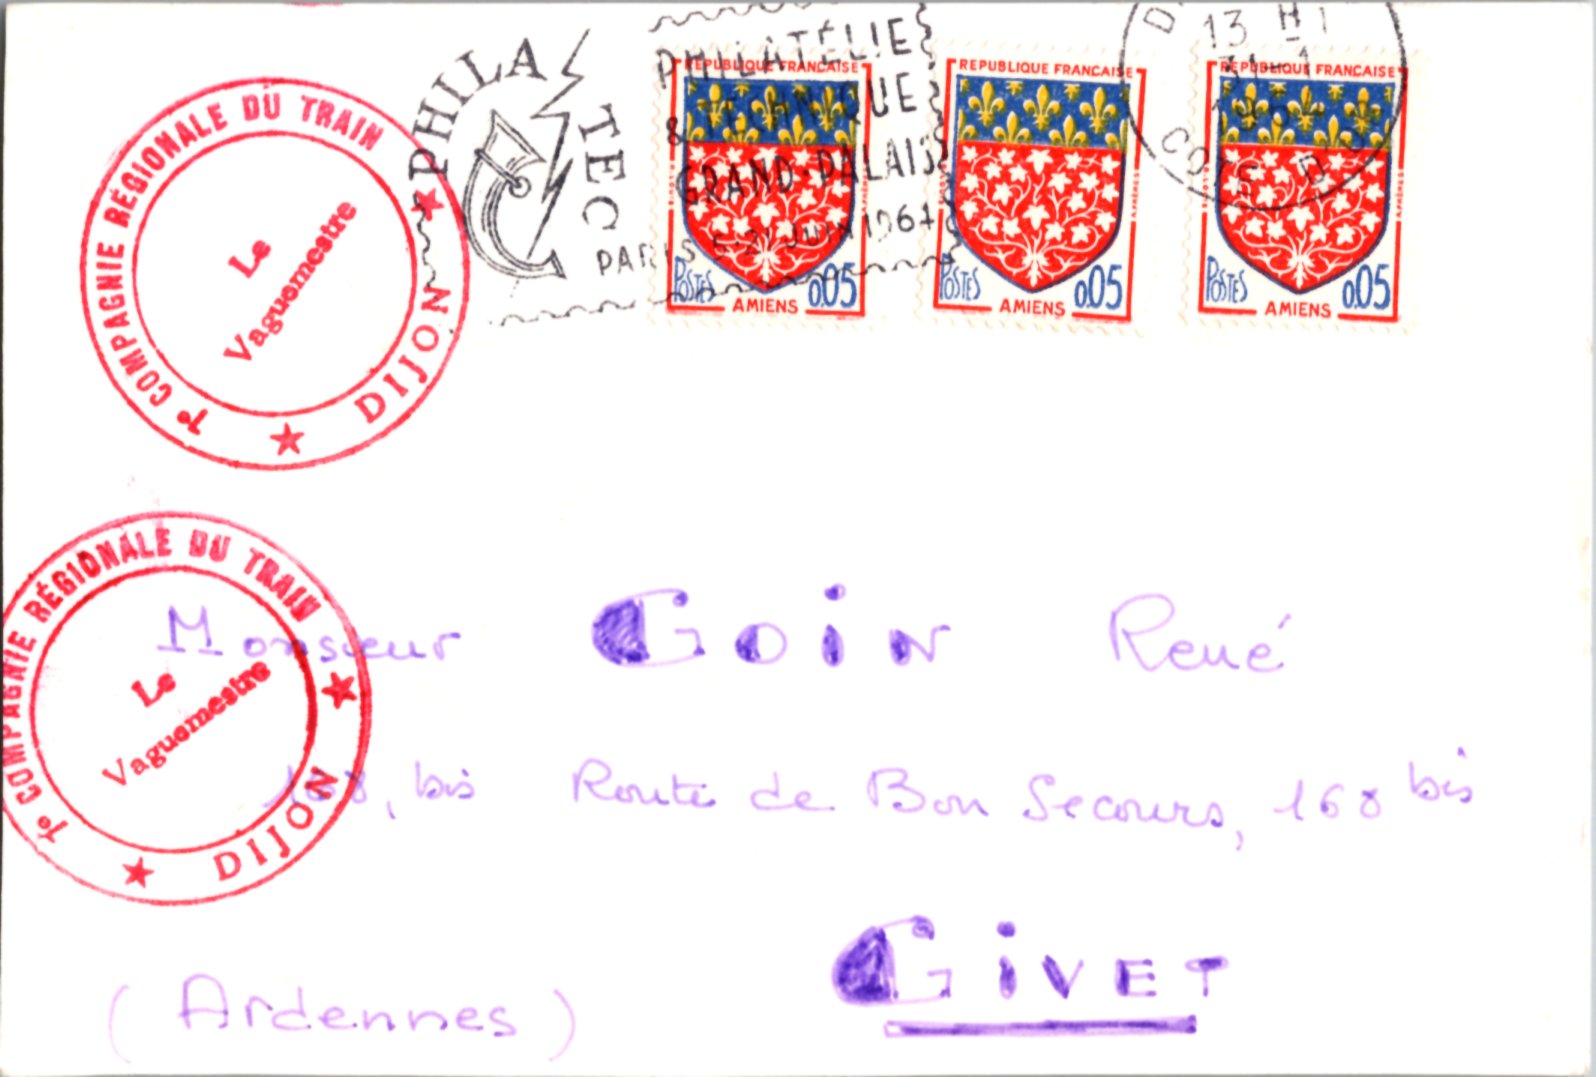 7e COMPAGNIE RÉGIONALE DU TRAIN
DIJON
Le
Vaguemestre
PHILATEC
PHILATÉLIE
& TECHNIQUE
GRAND-PALAIS
PARIS 5-21 JUIN 1964
REPUBLIQUE FRANÇAISE
POSTES
0,05
AMIENS
REPUBLIQUE FRANÇAISE
POSTES
0,05
AMIENS
REPUBLIQUE FRANÇAISE
POSTES
0,05
AMIENS
13 H
COTE D'OR
7e COMPAGNIE RÉGIONALE DU TRAIN
DIJON
Le
Vaguemestre
Monsieur GOIN René
168, bis Route de Bon Secours, 168 bis
GIVET
(Ardennes)